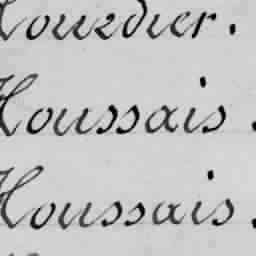 Hourdier.
Houssais.
Houssais.